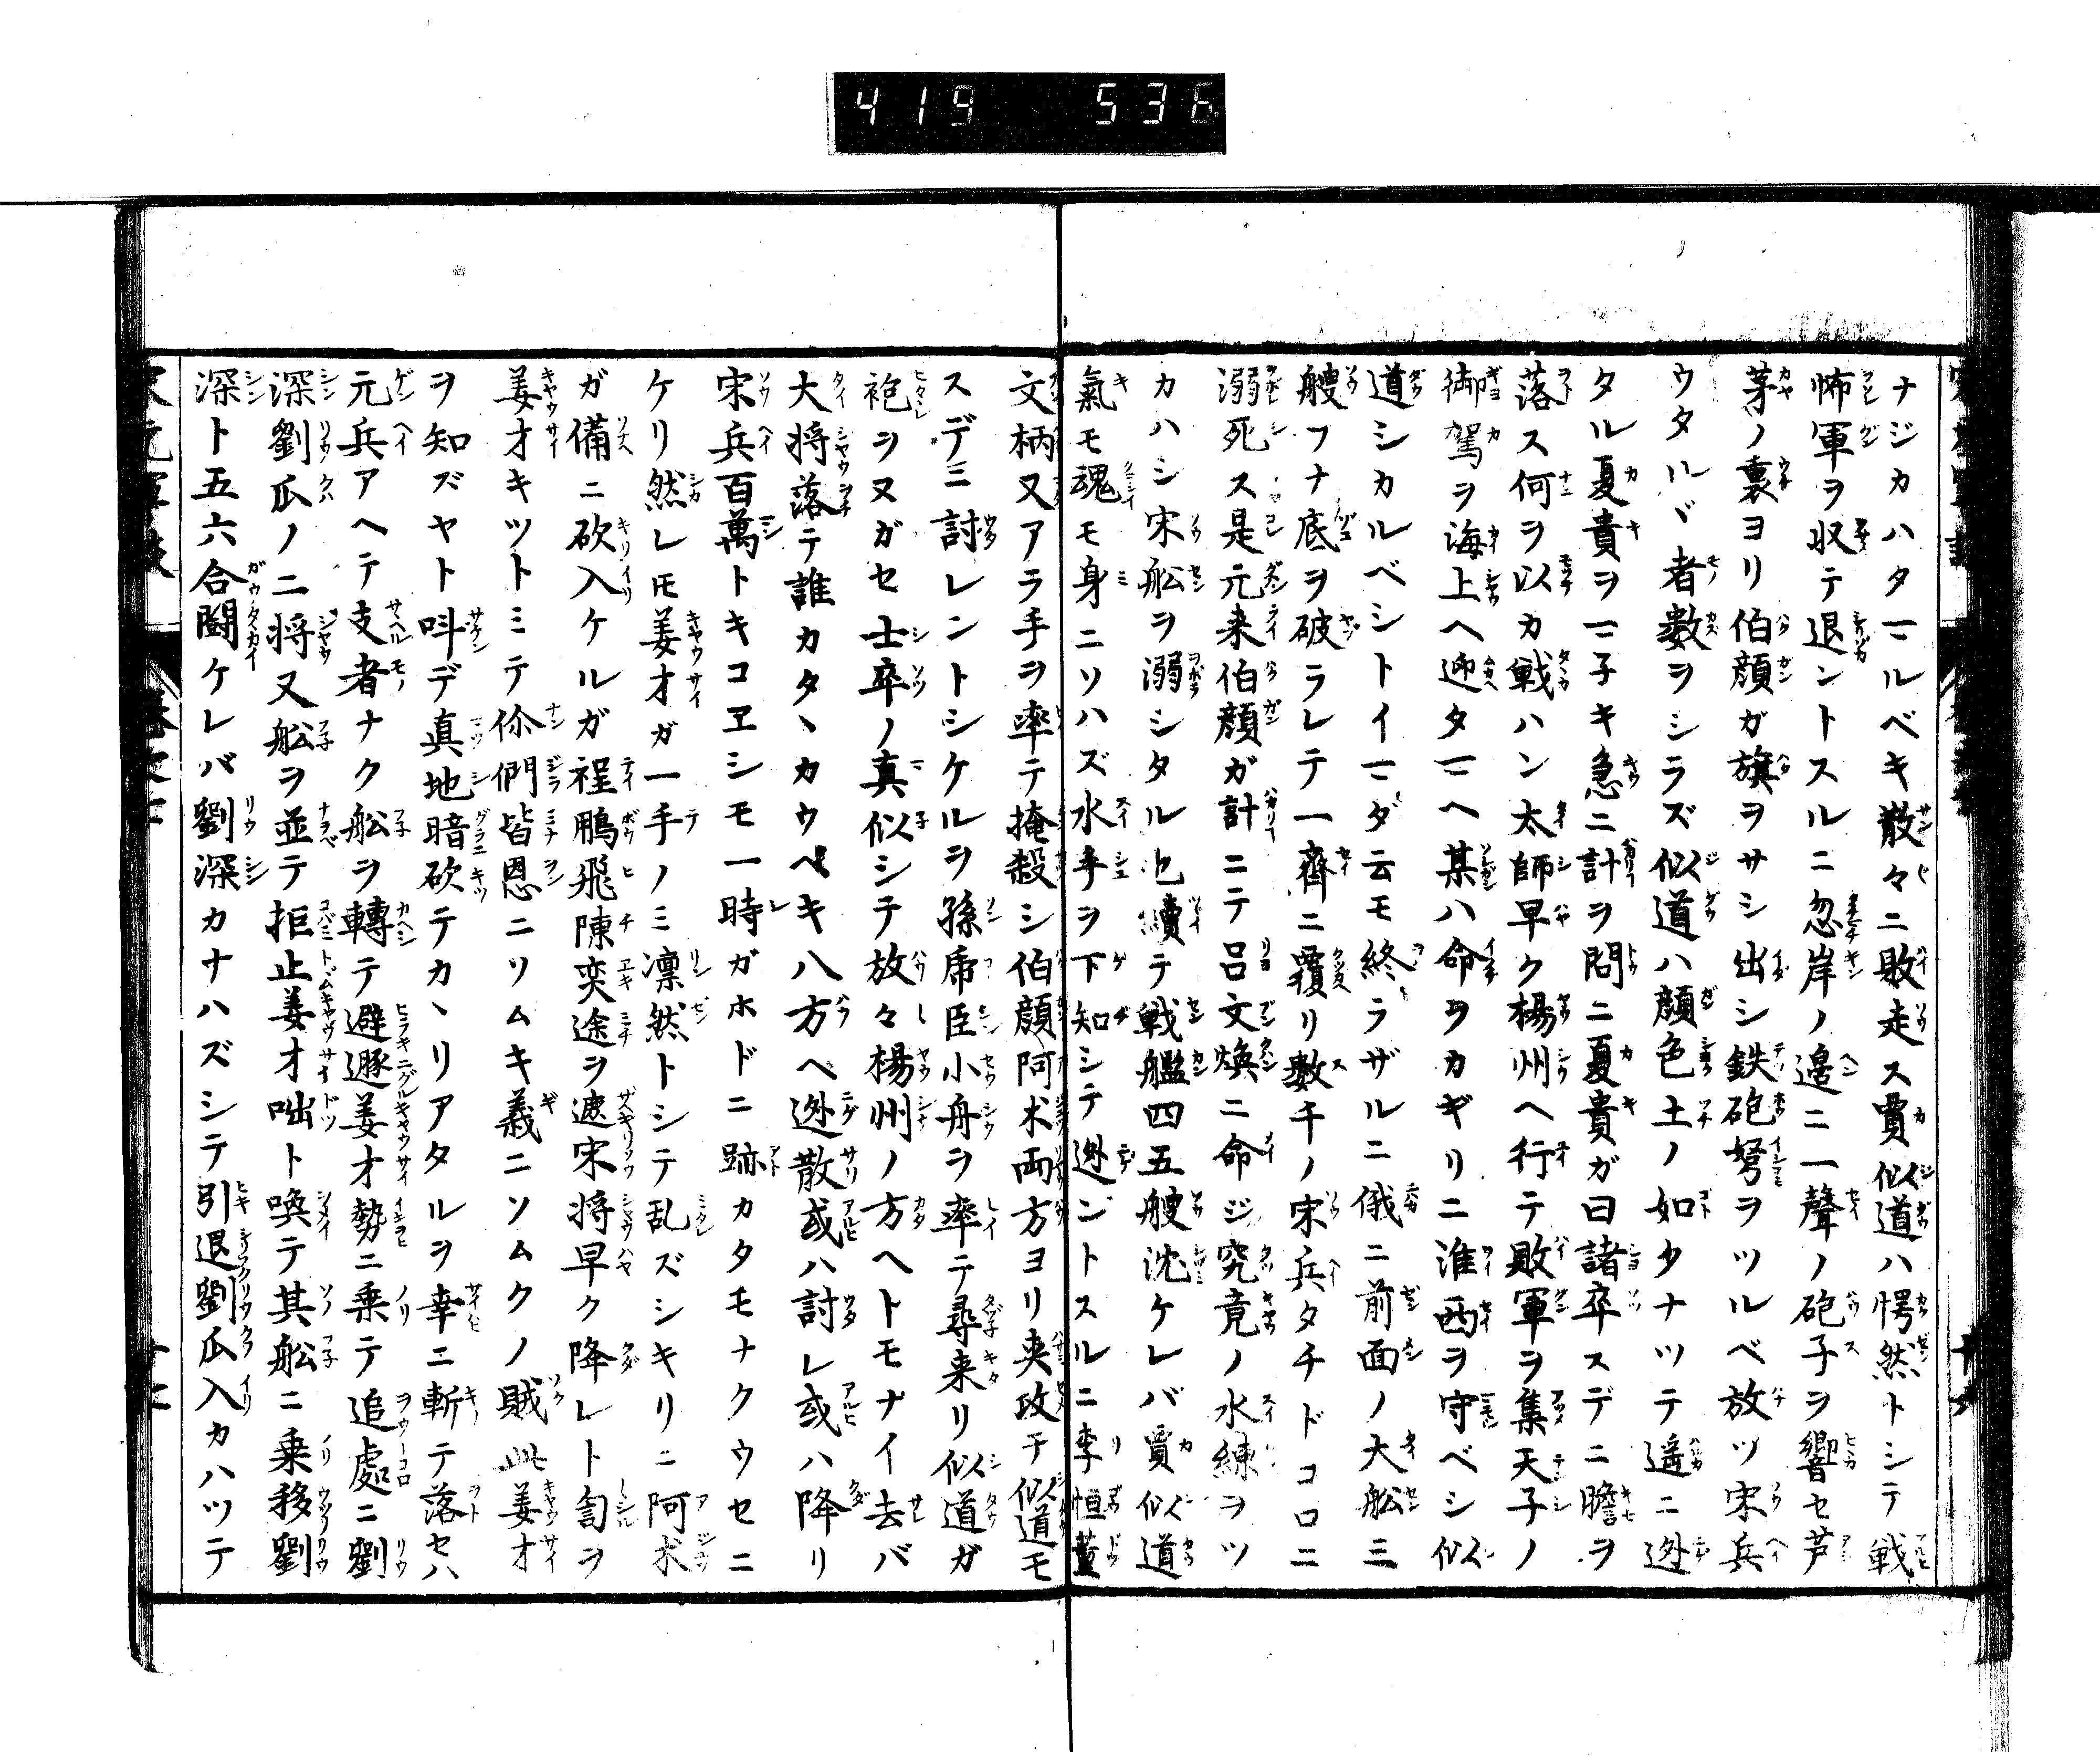 419 536
ナジカハタマルベキ散々ニ敗走ス賈似道ハ愕然トシテ戦
怖軍ヲ収テ退ントスルニ忽岸ノ邉ニ一聲ノ砲子ヲ響セ芦
茅ノ裏ヨリ伯顔ガ旗ヲサシ出シ鉄砲弩ヲツルベ放ツ宋兵
ウタルヽ者數ヲシラズ似道ハ顔色土ノ如クナツテ遥ニ迯
タル夏貴ヲマ子キ急ニ計ヲ問ニ夏貴ガ曰諸卒スデニ膽ヲ
落ス何ヲ以カ戦ハン太師早ク楊州ヘ行テ敗軍ヲ集天子ノ
御駕ヲ海上ヘ迎タマヘ某ハ命ヲカギリニ淮西ヲ守ベシ似
道シカルベシトイマダ云モ終ラザルニ俄ニ前面ノ大舩三
艘フナ底ヲ破ラレテ一齊ニ覆リ數千ノ宋兵タチドコロニ
溺死ス是元来伯顔ガ計ニテ呂文煥ニ命ジ究竟ノ水練ヲツ
カハシ宋舩ヲ溺シタル也續テ戦艦四五艘沈ケレバ賈似道
氣モ魂モ身ニソハズ水手ヲ下知シテ迯ントスルニ李恒董
文柄又アラ手ヲ率テ掩殺シ伯顔阿朮両方ヨリ夾攻テ似道モ
スデニ討レントシケルヲ孫虎臣小舟ヲ率テ尋来リ似道ガ
袍ヲヌガセ士卒ノ真似シテ放々楊州ノ方ヘトモナイ去バ
大将落テ誰カタヽカウベキ八方ヘ迯散或ハ討レ或ハ降リ
宋兵百萬トキコヱシモ一時ガホドニ跡カタモナクウセニ
ケリ然レ𪜈姜才ガ一手ノミ凛然トシテ乱ズシキリニ阿朮
ガ備ニ砍入ケルガ程鵬飛陳奕途ヲ遮宋将早ク降レト訇ヲ
姜才キツトミテ你們皆恩ニソムキ義ニソムクノ賊此姜才
ヲ知ズヤト呌デ真地暗砍テカヽリアタルヲ幸ニ斬テ落セハ
元兵アヘテ支者ナク舩ヲ轉テ避遯姜才勢ニ乗テ追處ニ劉
深劉瓜ノ二将又舩ヲ並テ拒止姜才咄ト喚テ其舩ニ乗移劉
深ト五六合鬪ケレバ劉深カナハズシテ引退劉瓜入カハツテ